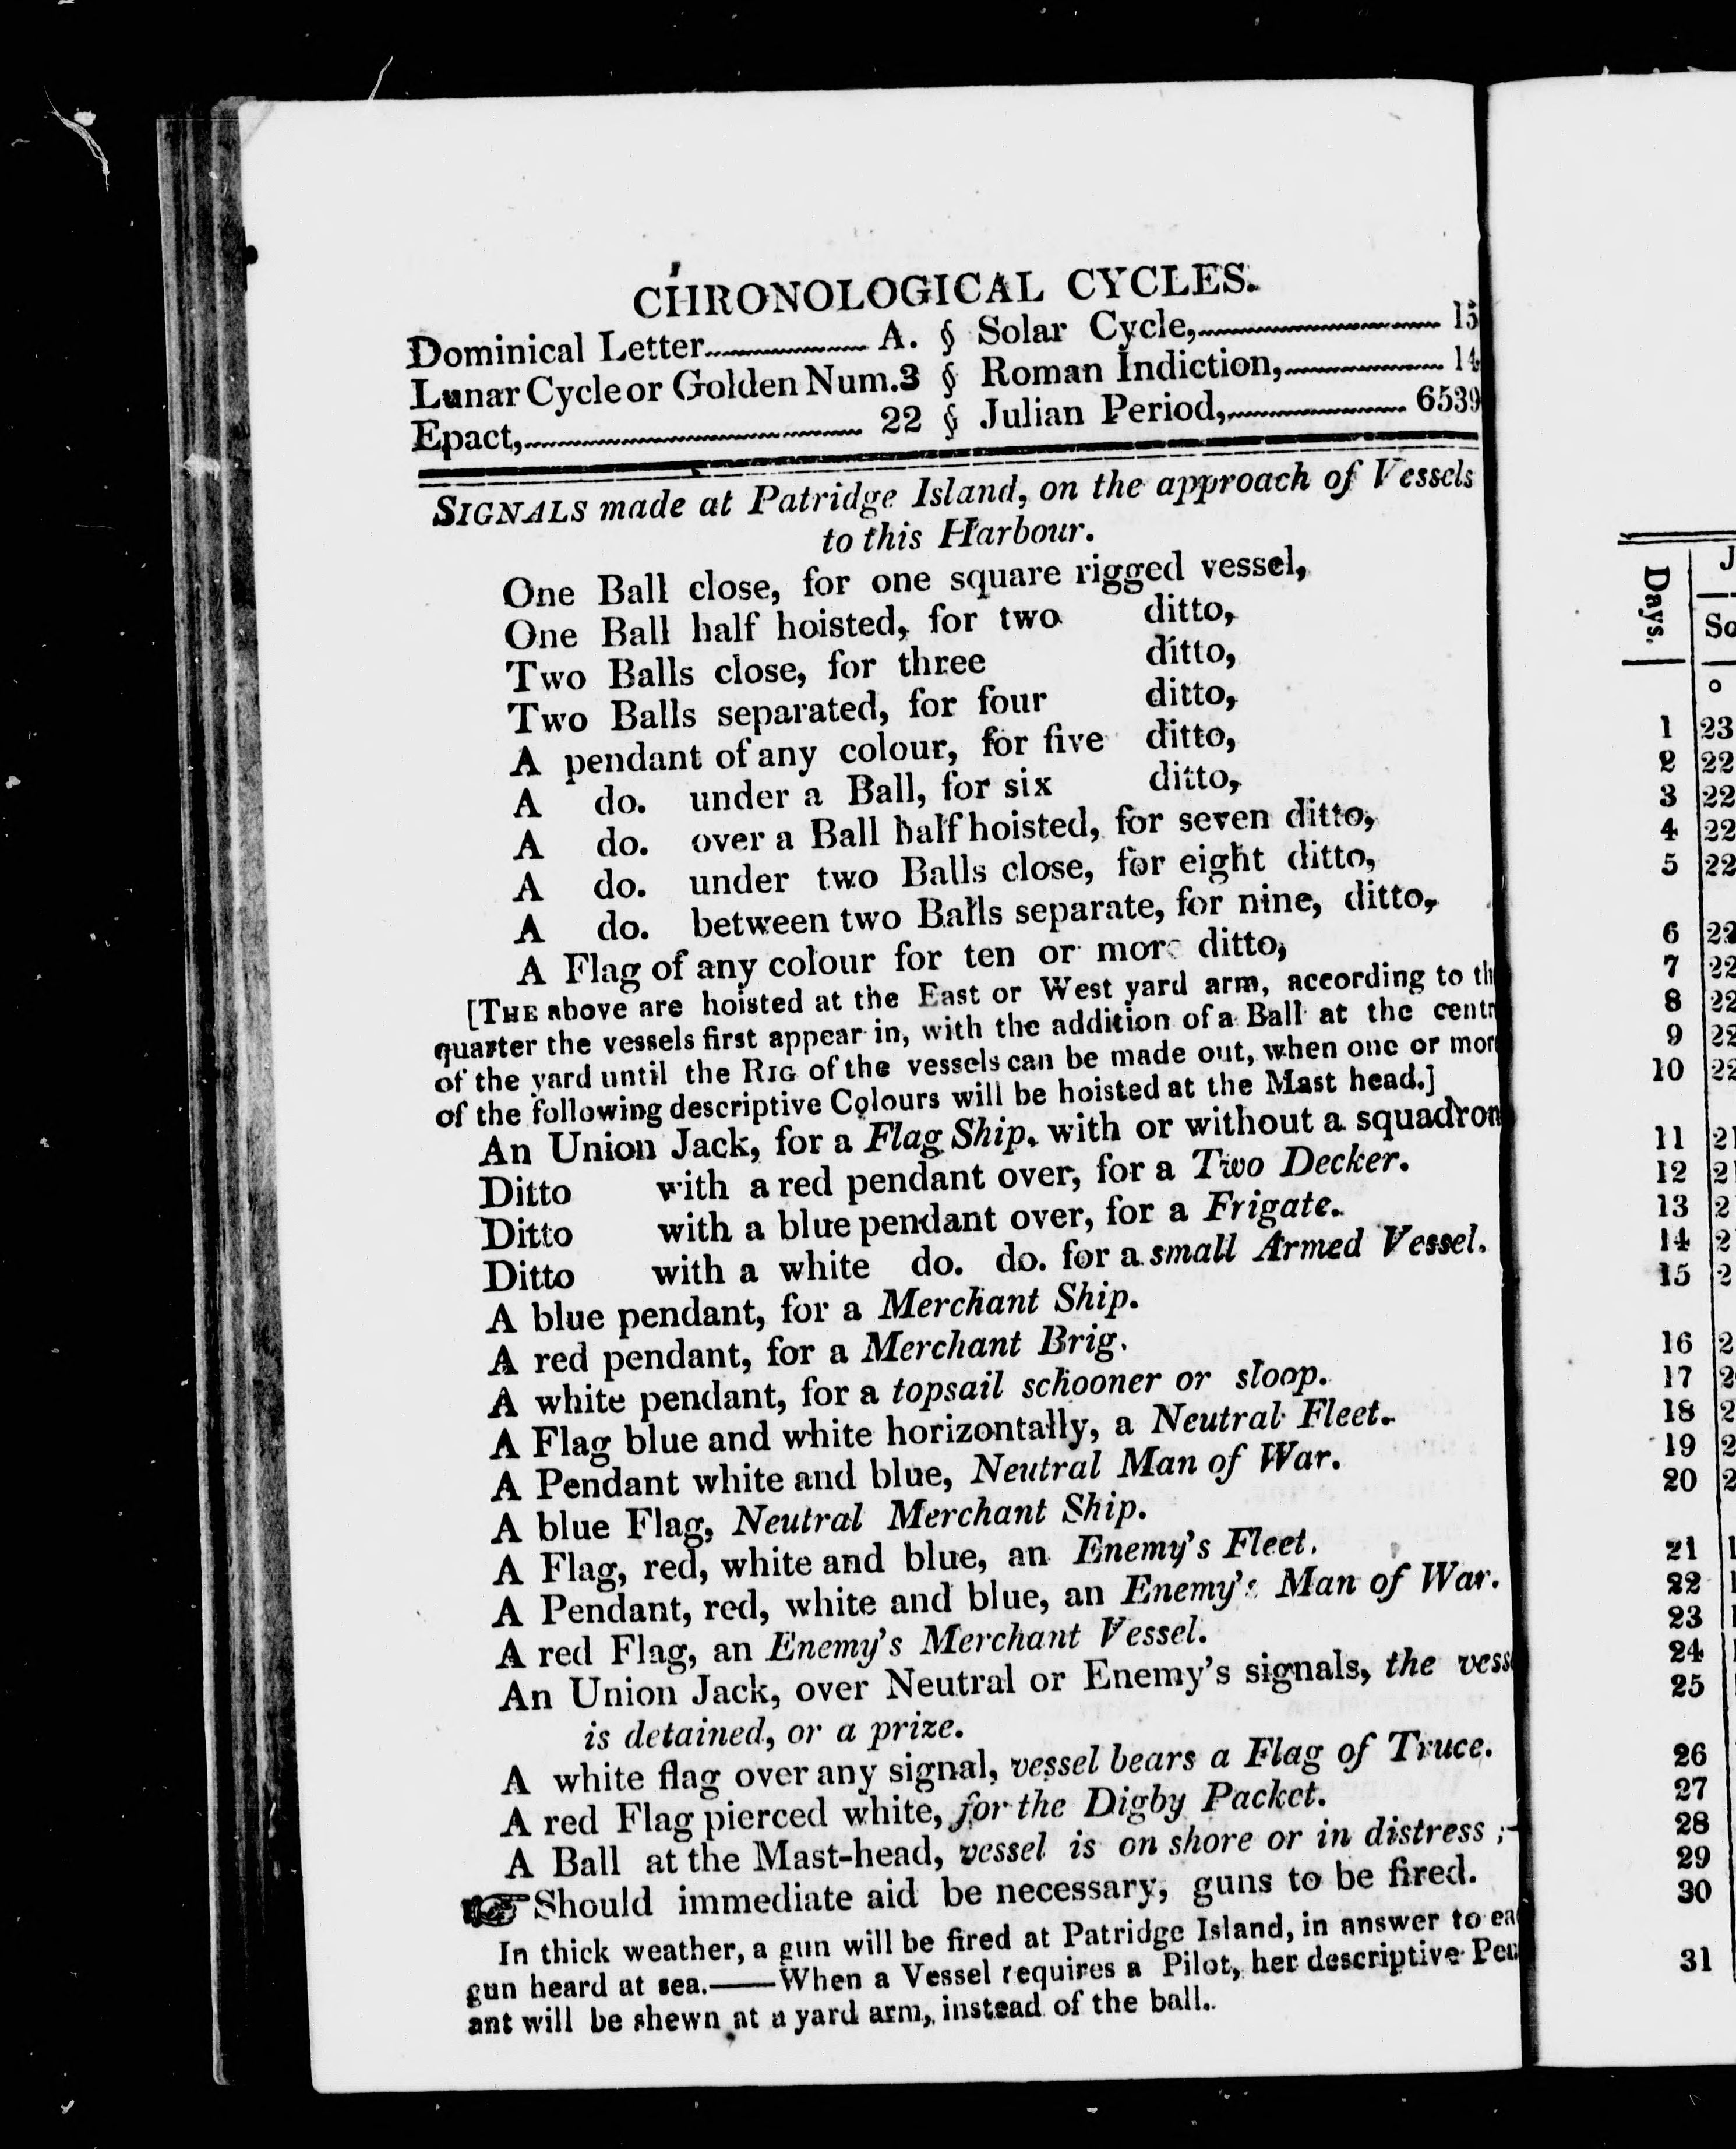 CHRONOLOGICAL CYCLES.
Dominical Letter A. § Solar Cycle, 15
Lunar Cycle or Golden Num. 3 § Roman Indiction, 14
Epact, 22 § Julian Period, 6539
SIGNALS made at Patridge Island, on the approach of Vessels
to this Harbour.
One Ball close, for one square rigged vessel,
One Ball half hoisted, for two ditto,
Two Balls close, for three ditto,
Two Balls separated, for four ditto,
A pendant of any colour, for five ditto,
A do. under a Ball, for six ditto,
A do. over a Ball half hoisted, for seven ditto,
A do. under two Balls close, for eight ditto,
A do. between two Balls separate, for nine, ditto,
A Flag of any colour for ten or more ditto,
[THE above are hoisted at the East or West yard arm, according to th
quarter the vessels first appear in, with the addition of a Ball at the centr
of the yard until the RIG of the vessels can be made out, when one or mor
of the following descriptive Colours will be hoisted at the Mast head.]
An Union Jack, for a Flag Ship, with or without a squadron
Ditto with a red pendant over, for a Two Decker.
Ditto with a blue pendant over, for a Frigate.
Ditto with a white do. do. for a small Armed Vessel.
A blue pendant, for a Merchant Ship.
A red pendant, for a Merchant Brig.
A white pendant, for a topsail schooner or sloop.
A Flag blue and white horizontally, a Neutral Fleet.
A Pendant white and blue, Neutral Man of War.
A blue Flag, Neutral Merchant Ship.
A Flag, red, white and blue, an Enemy's Fleet.
A Pendant, red, white and blue, an Enemy's Man of War.
A red Flag, an Enemy's Merchant Vessel.
An Union Jack, over Neutral or Enemy's signals, the vess
is detained, or a prize.
A white flag over any signal, vessel bears a Flag of Truce.
A red Flag pierced white, for the Digby Packet.
A Ball at the Mast-head, vessel is on shore or in distress ;-
☞ Should immediate aid be necessary, guns to be fired.
In thick weather, a gun will be fired at Patridge Island, in answer to ea
gun heard at sea.——When a Vessel requires a Pilot, her descriptive Pen
ant will be shewn at a yard arm, instead of the ball.
Days.
J
So
°
1 23
2 22
3 22
4 22
5 22
6 22
7 22
8 22
9 22
10 22
11 21
12 2
13 2
14 2
15 2
16 2
17 2
18 2
19 2
20 2
21 1
22 1
23 1
24 1
25
26
27
28
29
30
31